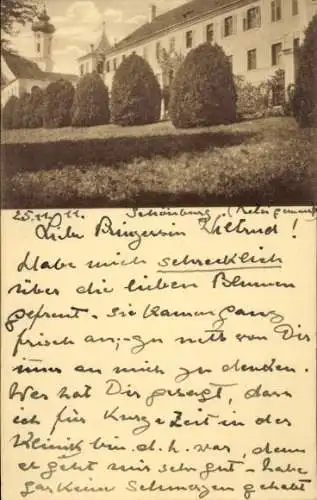 25.11.11. Schönburg
Liebe Prinzessin Wiltrud!
Habe mich schrecklich
über die lieben Blumen
gefreut - sie kamen ganz
frisch an; - zu nett von Dir
immer an mich zu denken.
Wer hat Dir gesagt, dass
ich für kurze Zeit in der
Klinik bin d.h. war, denn
es geht mir sehr gut - habe
gar keine Schmerzen gehabt